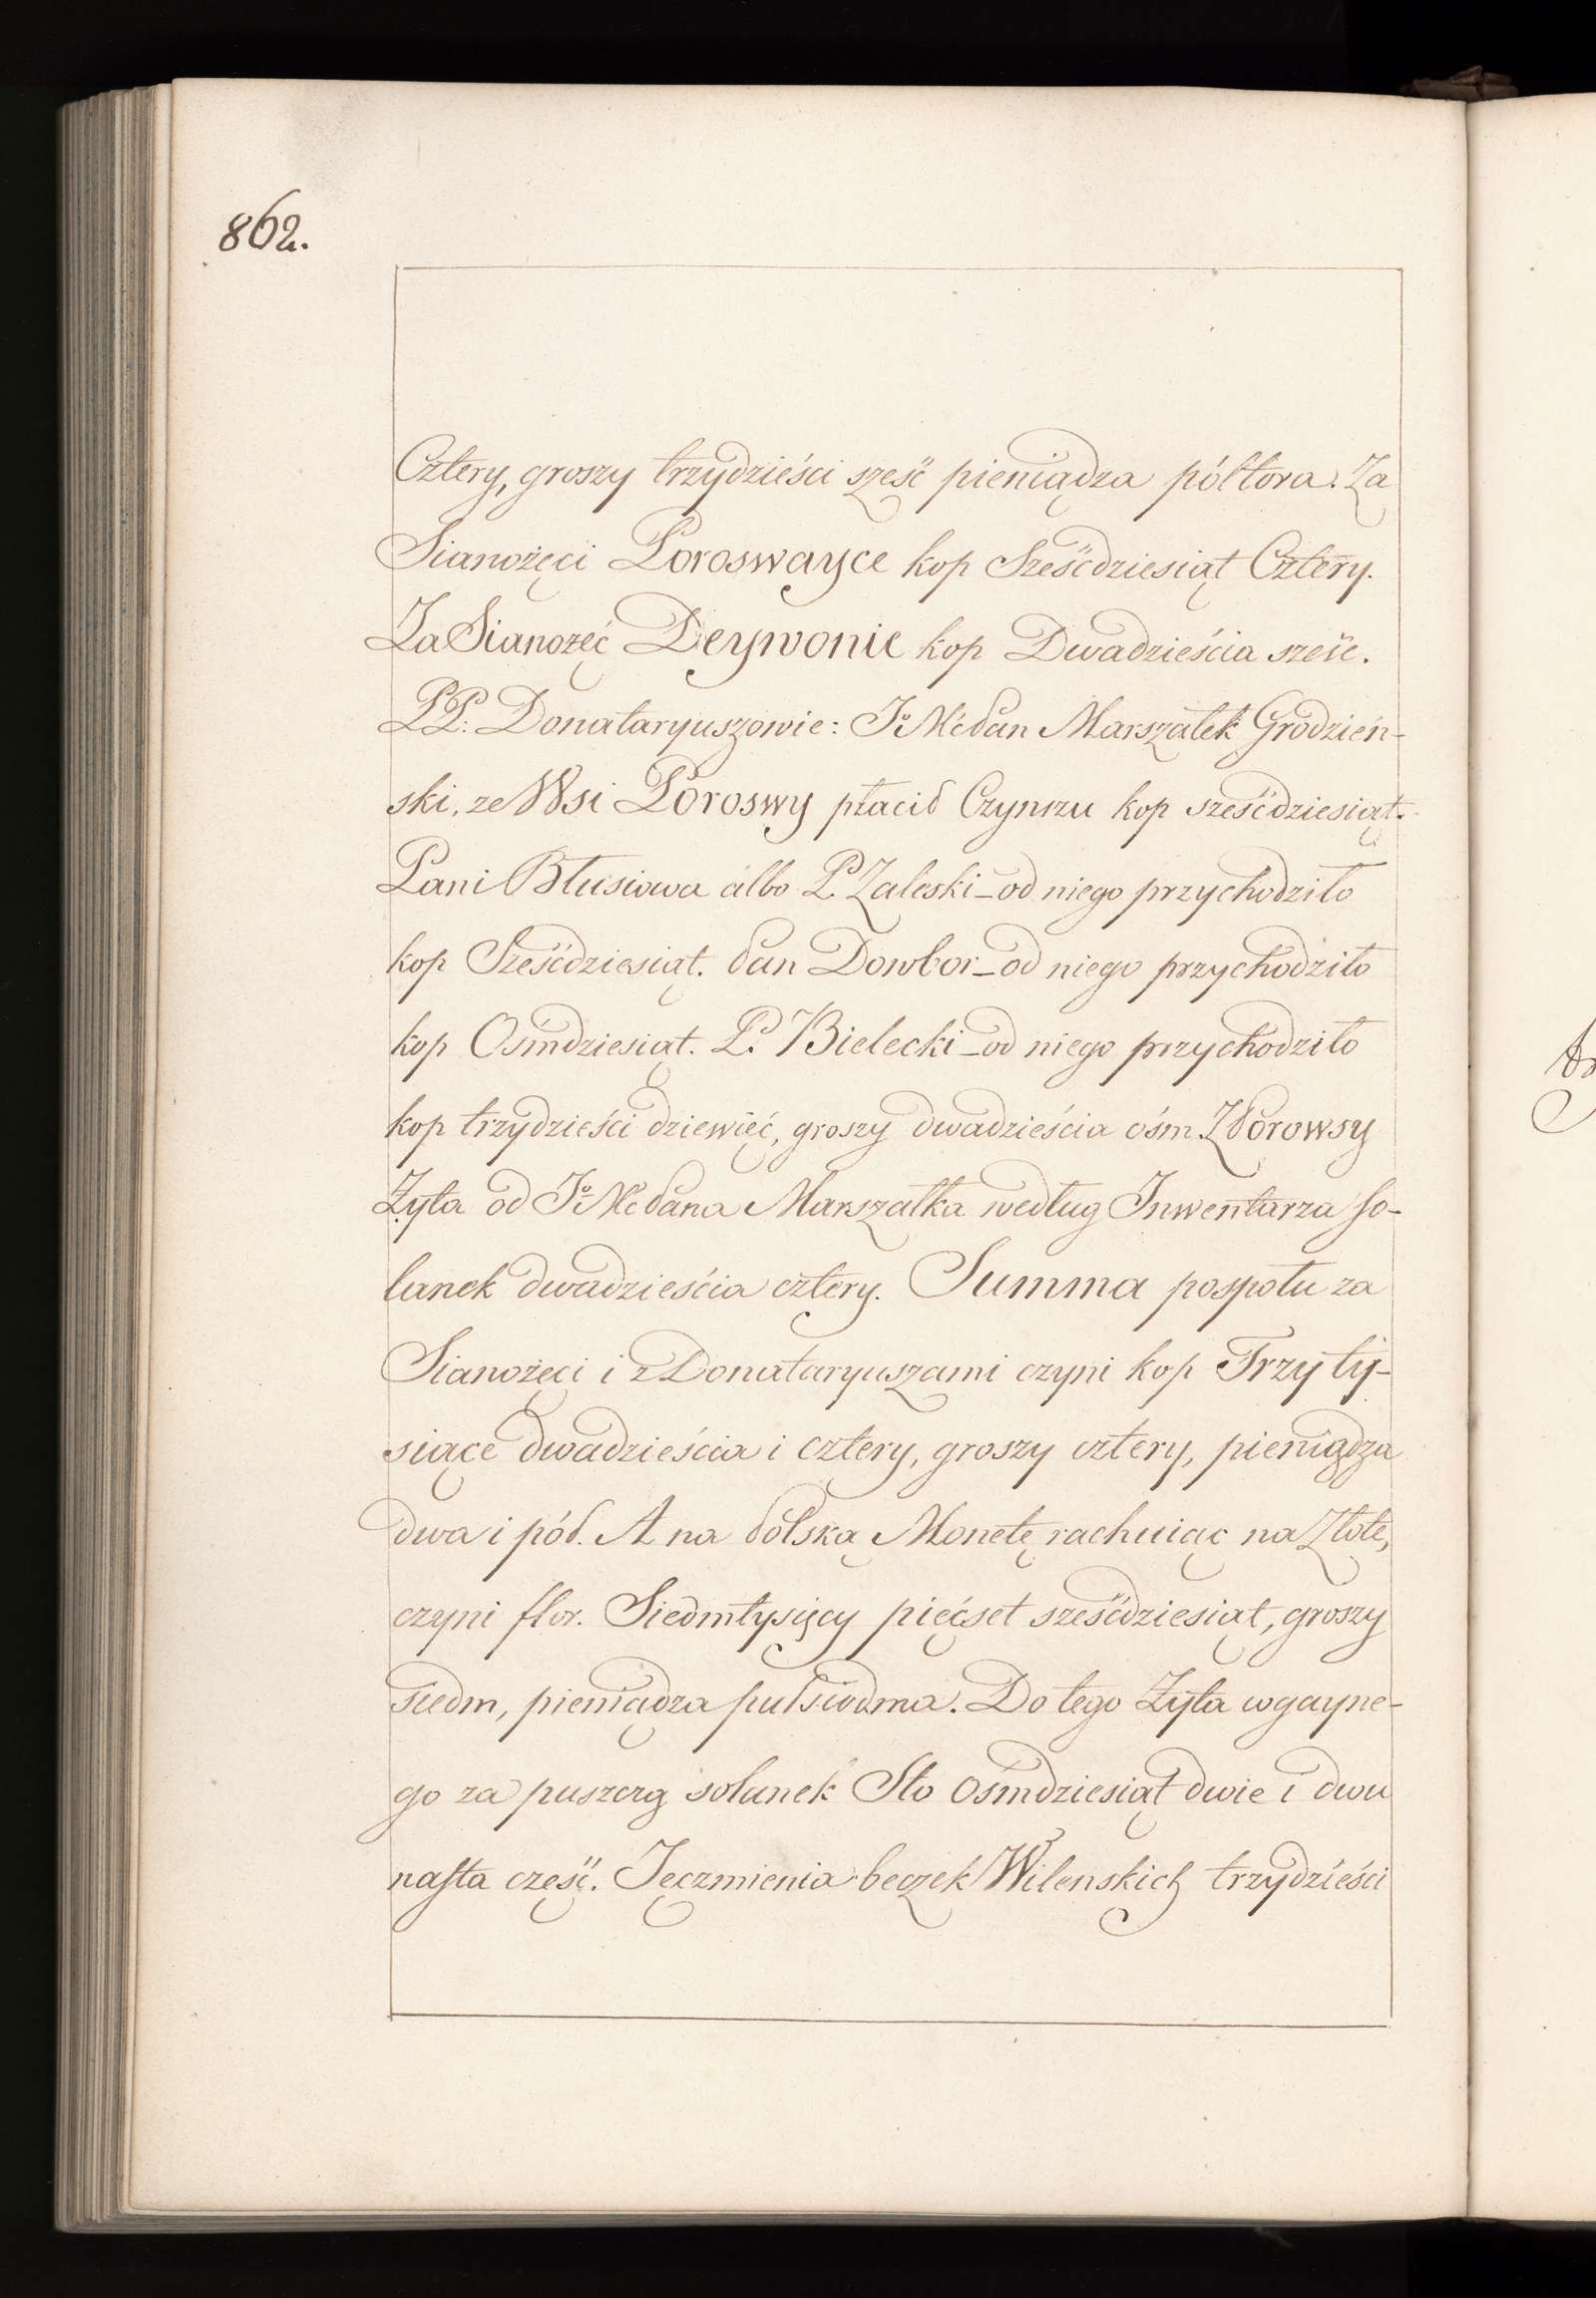 862.
Cztery, groszy trzydzieści sześć pieniądza półtora. Za
Sianożęci Poroswayce kop Sześćdziesiąt Cztery.
Za Sianożęć Deywonie kop Dwadzieścia sześć.
PP. Donataryuszowie: Jº Mć Pan Marszałek Grodzień-
ski, ze Wsi Poroswy płacił Czynszu kop sześćdziesiąt.
Pani Błusiowa albo P. Zaleski – od niego przychodziło
kop Sześćdziesiąt. Pan Dowbor – od niego przychodziło
kop Ośmdziesiąt. P. Bielecki – od niego przychodziło
kop trzydzieści dziewięć, groszy dwadzieścia ośm. Z Porowsy
Żyta od Jº Mć Pana Marszałka według Inwentarza so-
lanek dwadzieścia cztery. Summa pospołu za
Sianożęci i z Donataryuszami czyni kop Trzy ty-
siące dwadzieścia i cztery, groszy cztery, pieniądza
dwa i pół. A na Polską Monetę rachuiąc na Złote,
czyni flor. Siedmtysięcy pięćset sześćdziesiąt, groszy
siedm, pieniądza pułsiodma. Do tego Żyta wgayne-
go za puszczą solanek Sto Ośmdziesiąt dwie i dwu
nasta część. Jęczmienia beczek Wilenskich trzydzieści